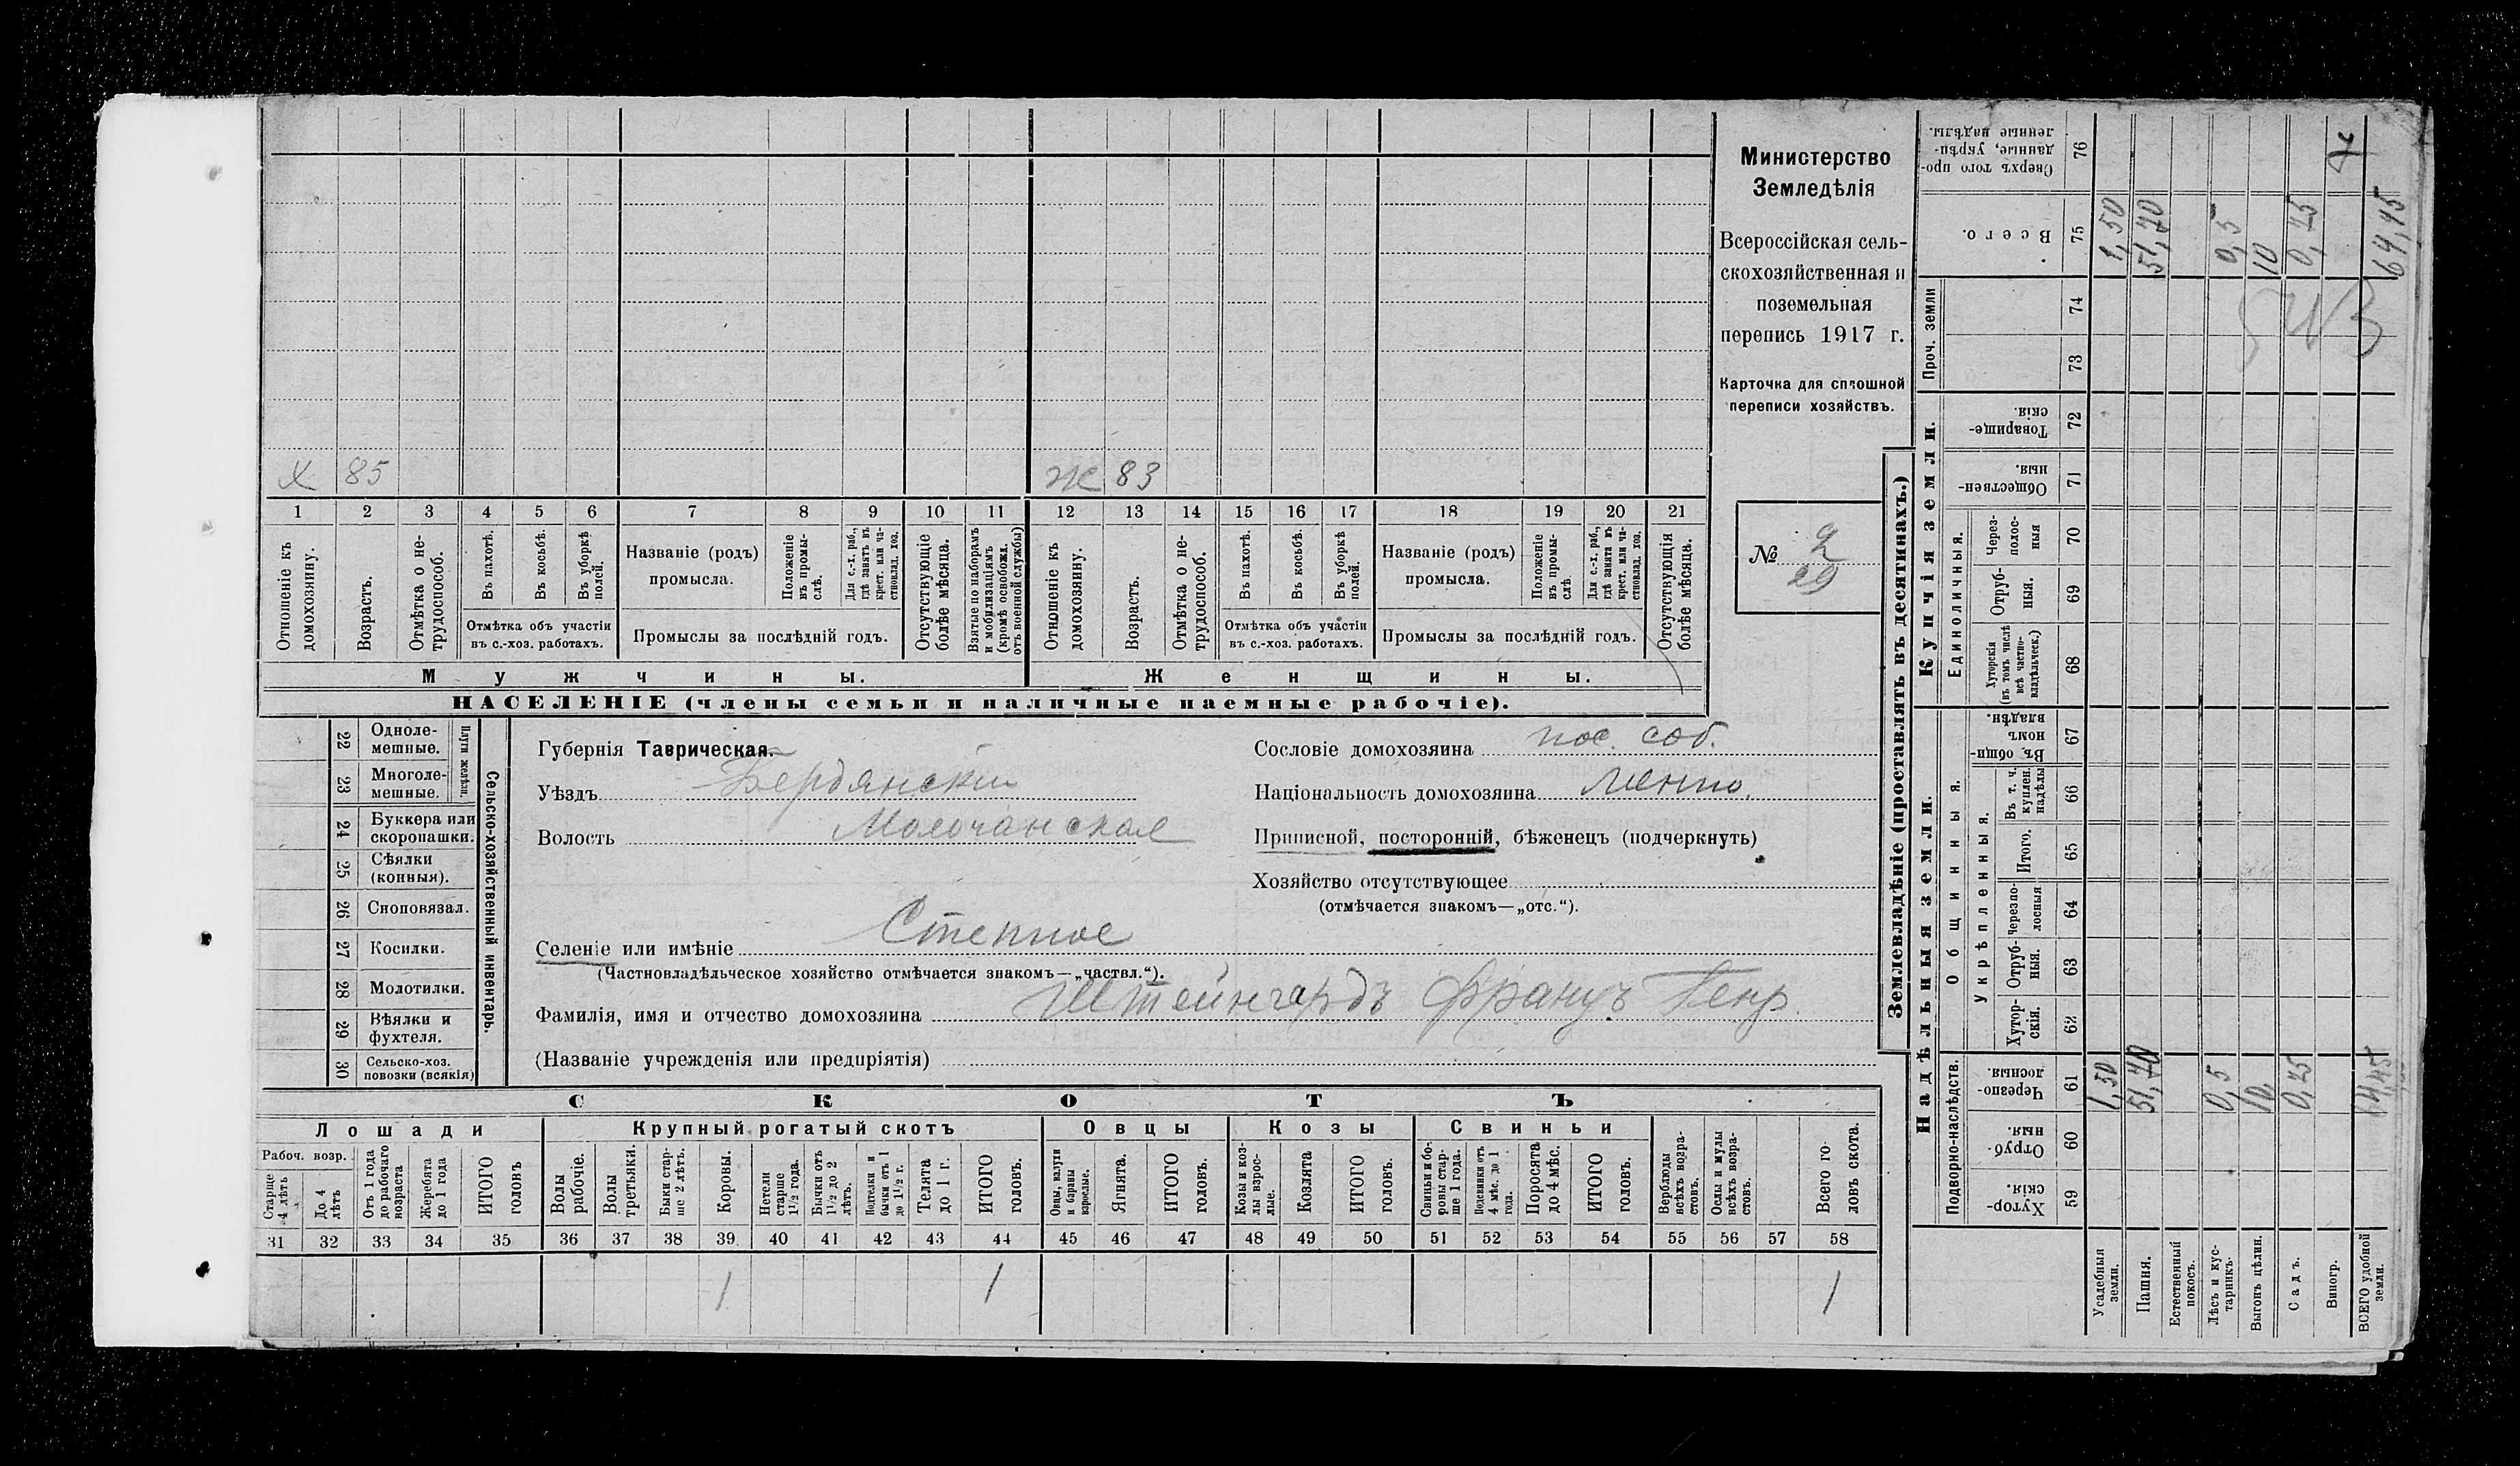 Х 85
Ж 83
1 2 3 4 5 6 7 8 9 10 11 12 13 14 15 16 17 18 19 20 21
Отношеніе къ домохозяину.
Возрастъ.
Отмѣтка о не-трудоспособ.
Въ пахотѣ.
Въ косьбѣ.
Въ уборкѣ полей.
Отмѣтка объ участіи
въ с.-хоз. работахъ.
Названіе (родъ)
промысла.
Положеніе въ промы-слѣ.
Для с.-х. раб., гдѣ занятъ въ крест. или ча-стновлад. хоз.
Промыслы за послѣдній годъ.
Отсутствующіе болѣе мѣсяца.
Взятые по наборамъ и мобилизаціямъ (кромѣ освобожд. отъ военной службы)
Отношеніе къ домохозяину.
Возрастъ.
Отмѣтка о не-трудоспособ.
Въ пахотѣ.
Въ косьбѣ.
Въ уборкѣ полей.
Отмѣтка объ участіи
въ с.-хоз. работахъ.
Названіе (родъ)
промысла.
Положеніе въ промы-слѣ
Для с.-х. раб., гдѣ занята въ крест. или ча-стновлад. хоз.
Промыслы за послѣдній годъ.
Отсутствующія болѣе мѣсяца.
Мужчины.
Женщины.
НАСЕЛЕНІЕ (члены семьи и наличные наемные рабочіе).
Министерство
Земледѣлія
Всероссійская сель-
скохозяйственная и
поземельная
перепись 1917 г.
Карточка для сплошной
переписи хозяйствъ.
№ 2
29
22 Одноле-мешные.
23 Многоле-мешные.
Плуги желѣзн.
24 Буккера или скоропашки.
25 Сѣялки (конныя).
26 Сноповязал.
27 Косилки.
28 Молотилки.
29 Вѣялки и фухтеля.
30 Сельско-хоз. повозки (всякія)
Сельско-хозяйственный инвентарь.
Губернія Таврическая.
Уѣздъ Бердянский
Волость Молочанская
Селеніе или имѣніе Степное
(Частновладѣльческое хозяйство отмѣчается знакомъ—„частвл.“).
Фамилія, имя и отчество домохозяина Штейнгардъ Францъ Генр.
(Названіе учрежденія или предпріятія)
Сословіе домохозяина пос. соб.
Національность домохозяина менно.
Приписной, посторонній, бѣженецъ (подчеркнуть)
Хозяйство отсутствующее
(отмѣчается знакомъ—„отс.“).
СКОТЪ
Лошади
Крупный рогатый скотъ
Овцы
Козы
Свиньи
Рабоч. возр.
Старше 4 лѣтъ
До 4 лѣтъ
Отъ 1 года до рабочаго возраста
Жеребята до 1 года
ИТОГО головъ
Волы рабочіе.
Волы третьяки.
Быки стар-ше 2 лѣтъ.
Коровы.
Нетели старше 1½ года.
Бычки отъ 1½ до 2 лѣтъ.
Подтелки и бычки отъ 1 до 1½ г.
Телята до 1 г.
ИТОГО головъ.
Овцы, валухи и бараны взрослые.
Ягнята.
ИТОГО головъ.
Козы и коз-лы взрос-лые.
Козлята
ИТОГО головъ.
Свиньи и бо-ровы стар-ше 1 года.
Подсвинки отъ 4 мѣс. до 1 года.
Поросята до 4 мѣс.
ИТОГО головъ.
Верблюды всѣхъ возра-стовъ.
Ослы и мулы всѣхъ возра-стовъ.
Всего го-ловъ скота.
31 32 33 34 35 36 37 38 39 40 41 42 43 44 45 46 47 48 49 50 51 52 53 54 55 56 57 58
1 1 1
Землевладѣніе (проставлять въ десятинахъ.)
Надѣльныя земли.
Купчія земли.
Проч. земли
Подворно-наслѣдств.
Общинныя.
Укрѣпленныя.
Единоличныя.
Хутор-скія. 59
Отруб-ныя. 60
Черезпо-лосныя. 61
Хутор-скія. 62
Отруб-ныя. 63
Черезпо-лосныя 64
Итого. 65
Въ т. ч. куплен. надѣлы 66
Въ общин-номъ владѣн. 67
Хуторскія (въ томъ числѣ всѣ частно-владѣльческ.) 68
Отруб-ныя. 69
Через-полос-ныя 70
Обществен-ныя. 71
Товарище-скія. 72
73
74
Всего. 75
Сверхъ того про-данные, укрѣп-ленные надѣлы. 76
Усадебныя земли. 1,50 1,50
Пашня. 51,70 51,70
Естественный покосъ.
Лѣсъ и кус-тарникъ. 0,5 0,5
Выгонъ цѣлин. 10, 10
Садъ. 0,75 0,75
Виногр.
ВСЕГО удобной земли. 64,45 64,45